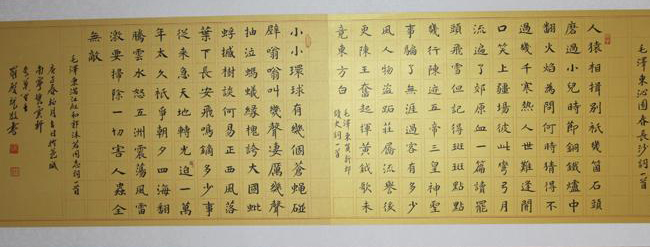 毛澤東沁園春長沙詞一首
人猿相揖別祇幾箇石頭
磨過小兒時節銅鐵爐中
翻火焰為問何時猜得不
過幾千寒熱人世難逢開
口笑上疆場彼此彎弓月
流遍了郊原血一篇讀罷
頭飛雪但記得斑斑點點
幾行陳迹五帝三皇神聖
事騙了無涯過客有多少
風人物盜跖莊屩流譽後
更陳王奮起揮黃鉞歌未
竟東方白
毛澤東賀新郎
讀史詞一首
小小環球有幾個蒼蠅碰
壁嗡嗡叫幾聲凄厲幾聲
抽泣螞蟻緣槐誇大國蚍
蜉撼樹談何易正西風落
葉下長安飛鳴鏑多少事
從來急天地轉光迫一萬
年太久祇爭朝夕四海翻
騰雲水怒五洲震蕩風雷
激要掃除一切害人蟲全
無敵
毛澤東滿江紅和郭沫若同志詞一首
庚子春拾月吉日於邕城
南寧